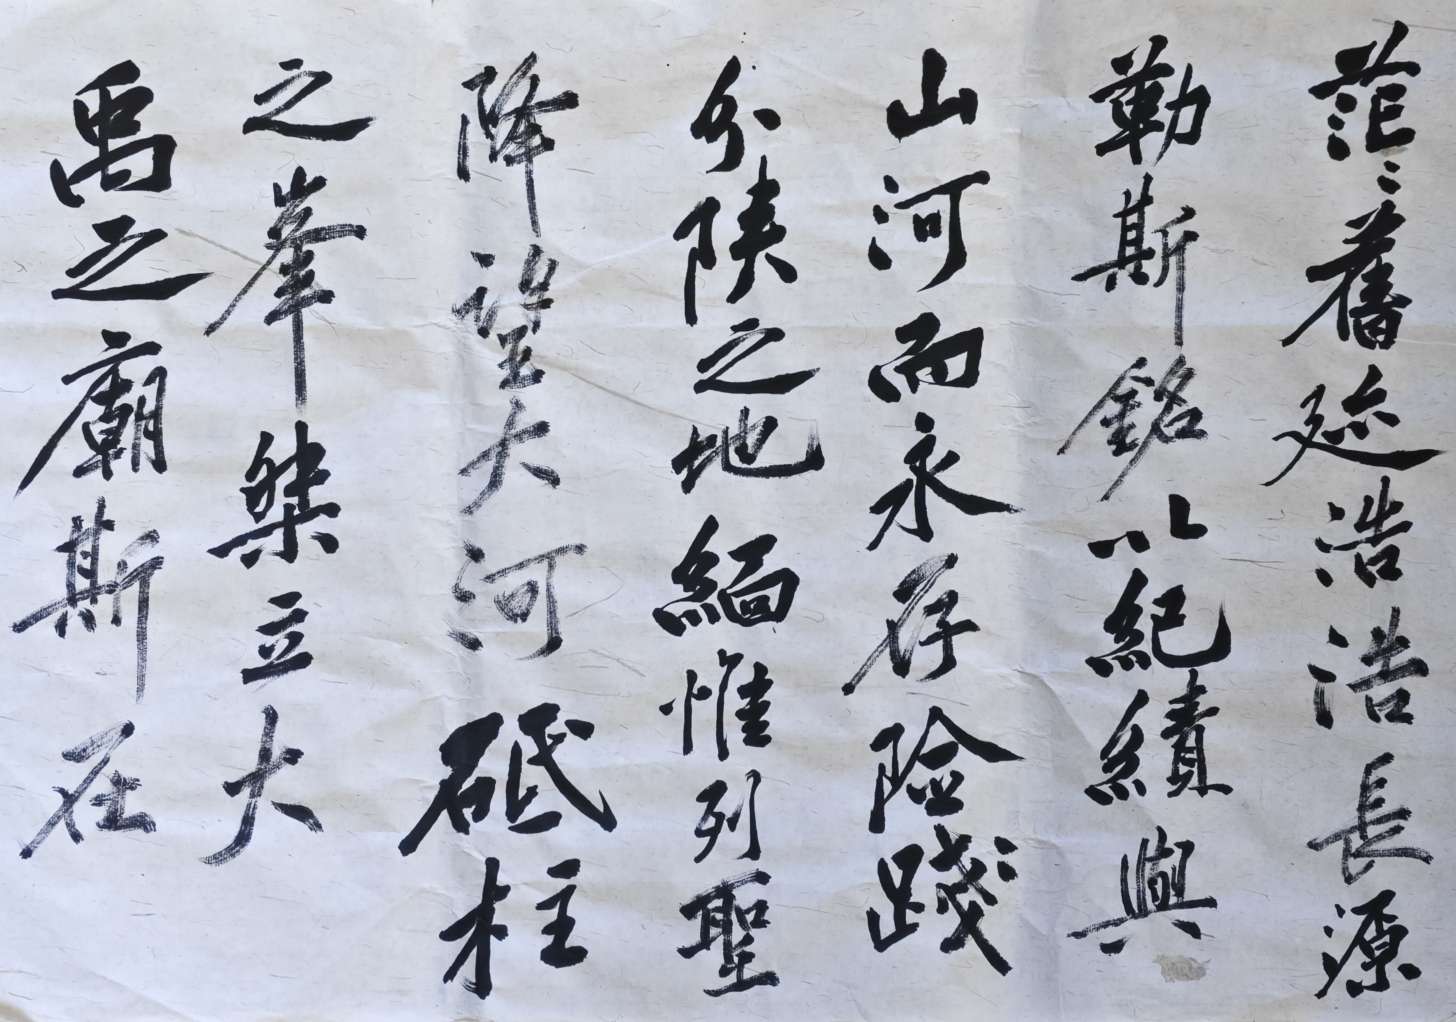 茫〻舊迹浩浩長源
勒斯銘以紀績與
山河而永存險踐
分陝之地緬惟列聖
降望大河砥柱
之峯桀立大
禹之廟斯在